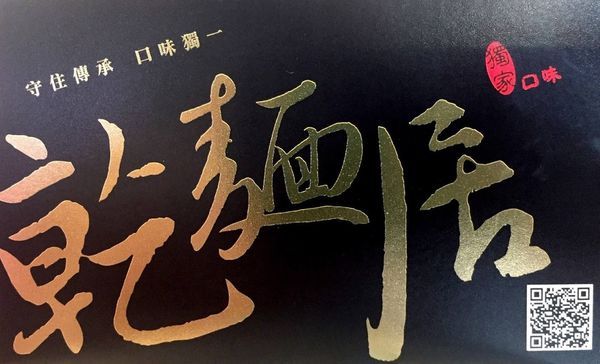 守住傳承 口味獨一
獨家
口味
乾麵居